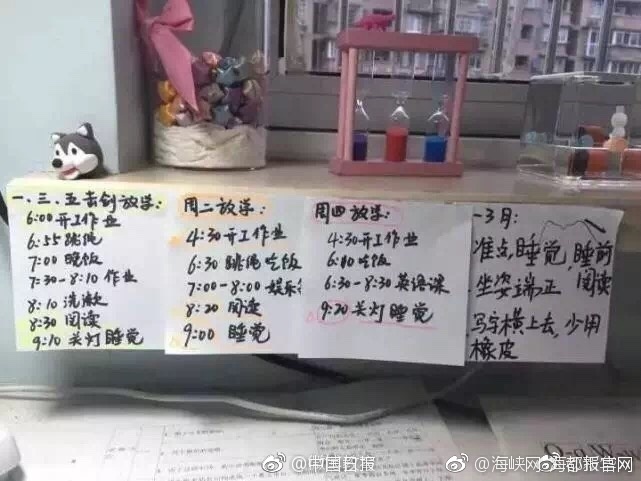 一、三、五击剑放学：
6:00开工作业
6:55跳绳
7:00晚饭
7:30-8:10作业
8:10洗漱
8:30阅读
9:10关灯睡觉
周二放学：
4:30开工作业
6:30跳绳吃饭
7:00-8:00娱乐
8:20阅读
9:00睡觉
周四放学：
4:30开工作业
吃饭
6:30-8:30英语课
9:20关灯睡觉
一3月：
准点睡觉,睡前
阅读
坐姿端正
写字横上去,少用
橡皮
@中国日报
@海峡网海都报官网